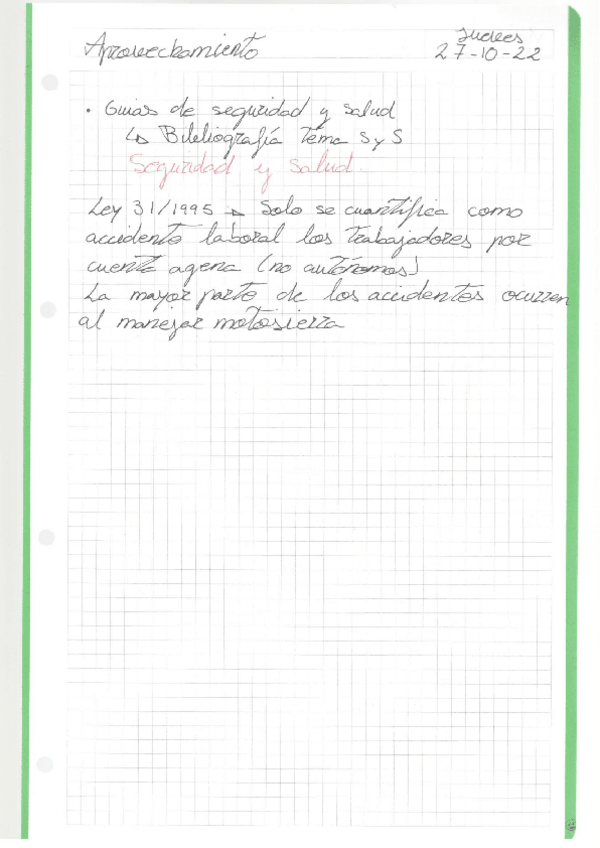 Aprovechamiento
Jueves
27-10-22
• Guias de seguridad y salud
↳ Bibliografía Tema S y S
Seguridad y Salud
Ley 31/1995 → Solo se cuantifica como
accidente laboral los trabajadores por
cuenta agena (no autónomos)
La mayor parte de los accidentes ocurren
al manejar motosierra